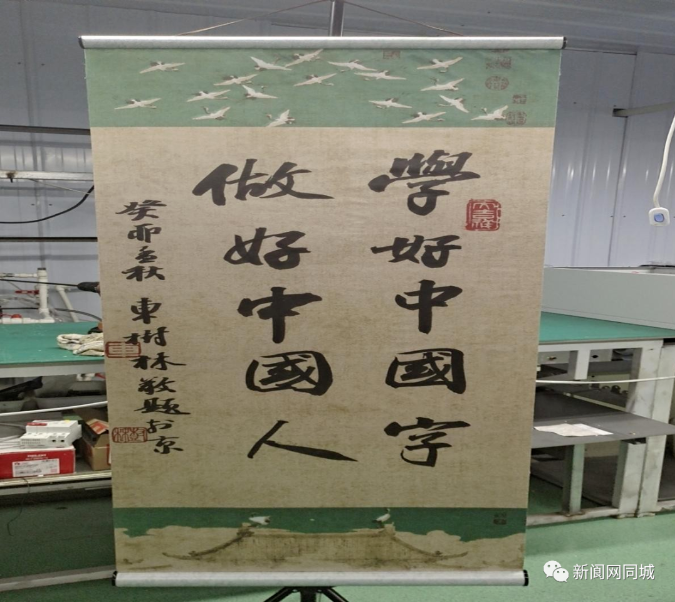 學好中國字
做好中國人
癸卯金秋 東樹林敬題於京
新阆网同城